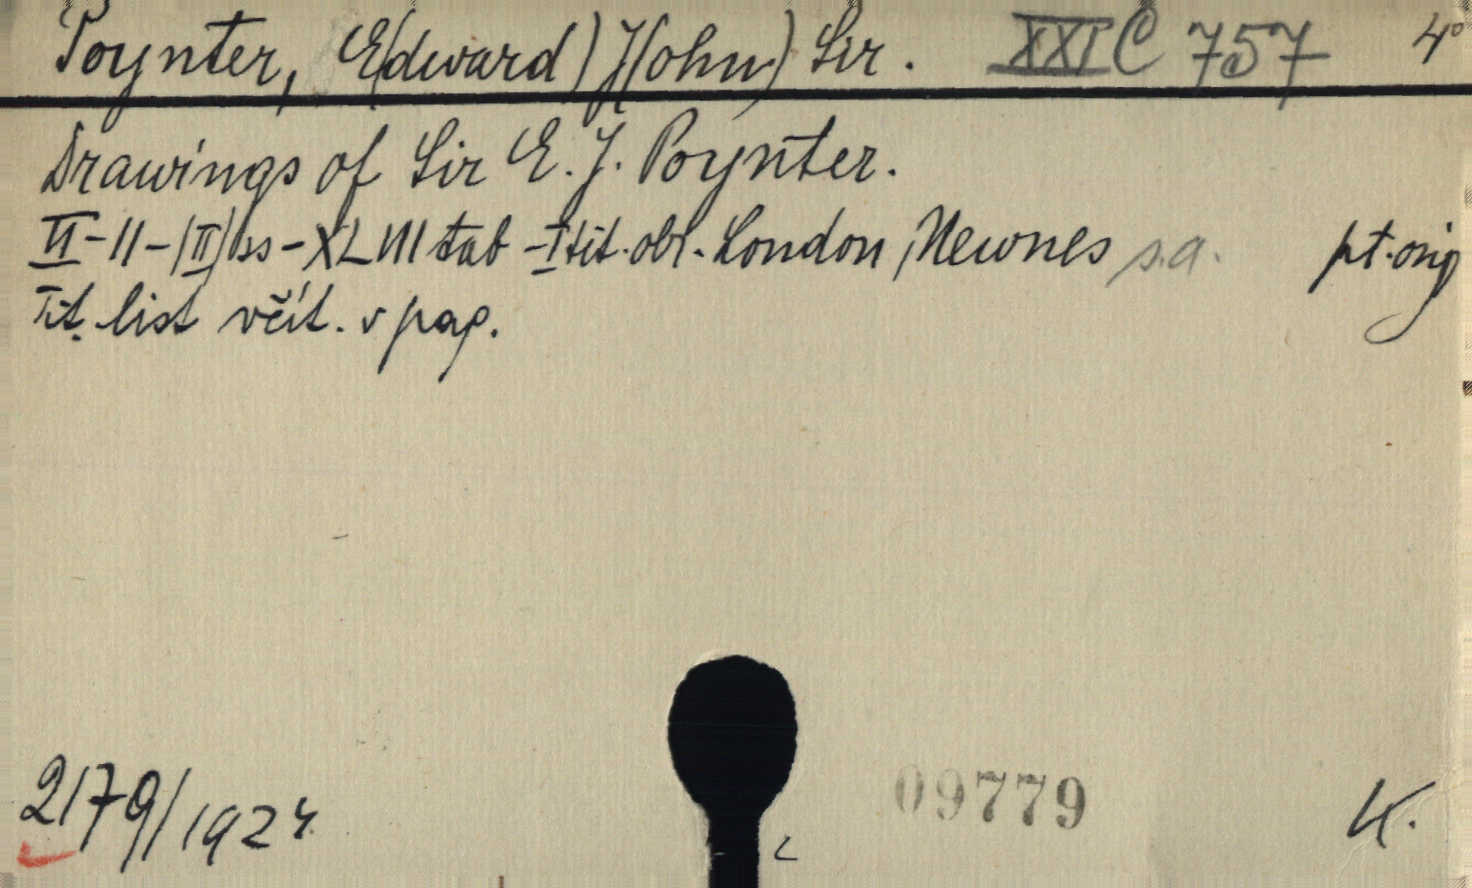 Poynter, E(dward) J(ohn) Sir. XXI C 757 4°
Drawings of Sir E. J. Poynter.
VI-11-(II) ss-XLVIII tab -I tit. obr. London, Newnes s.a. pt. orig
Tit. list včít. v pag.
2179/1924
09779
K.